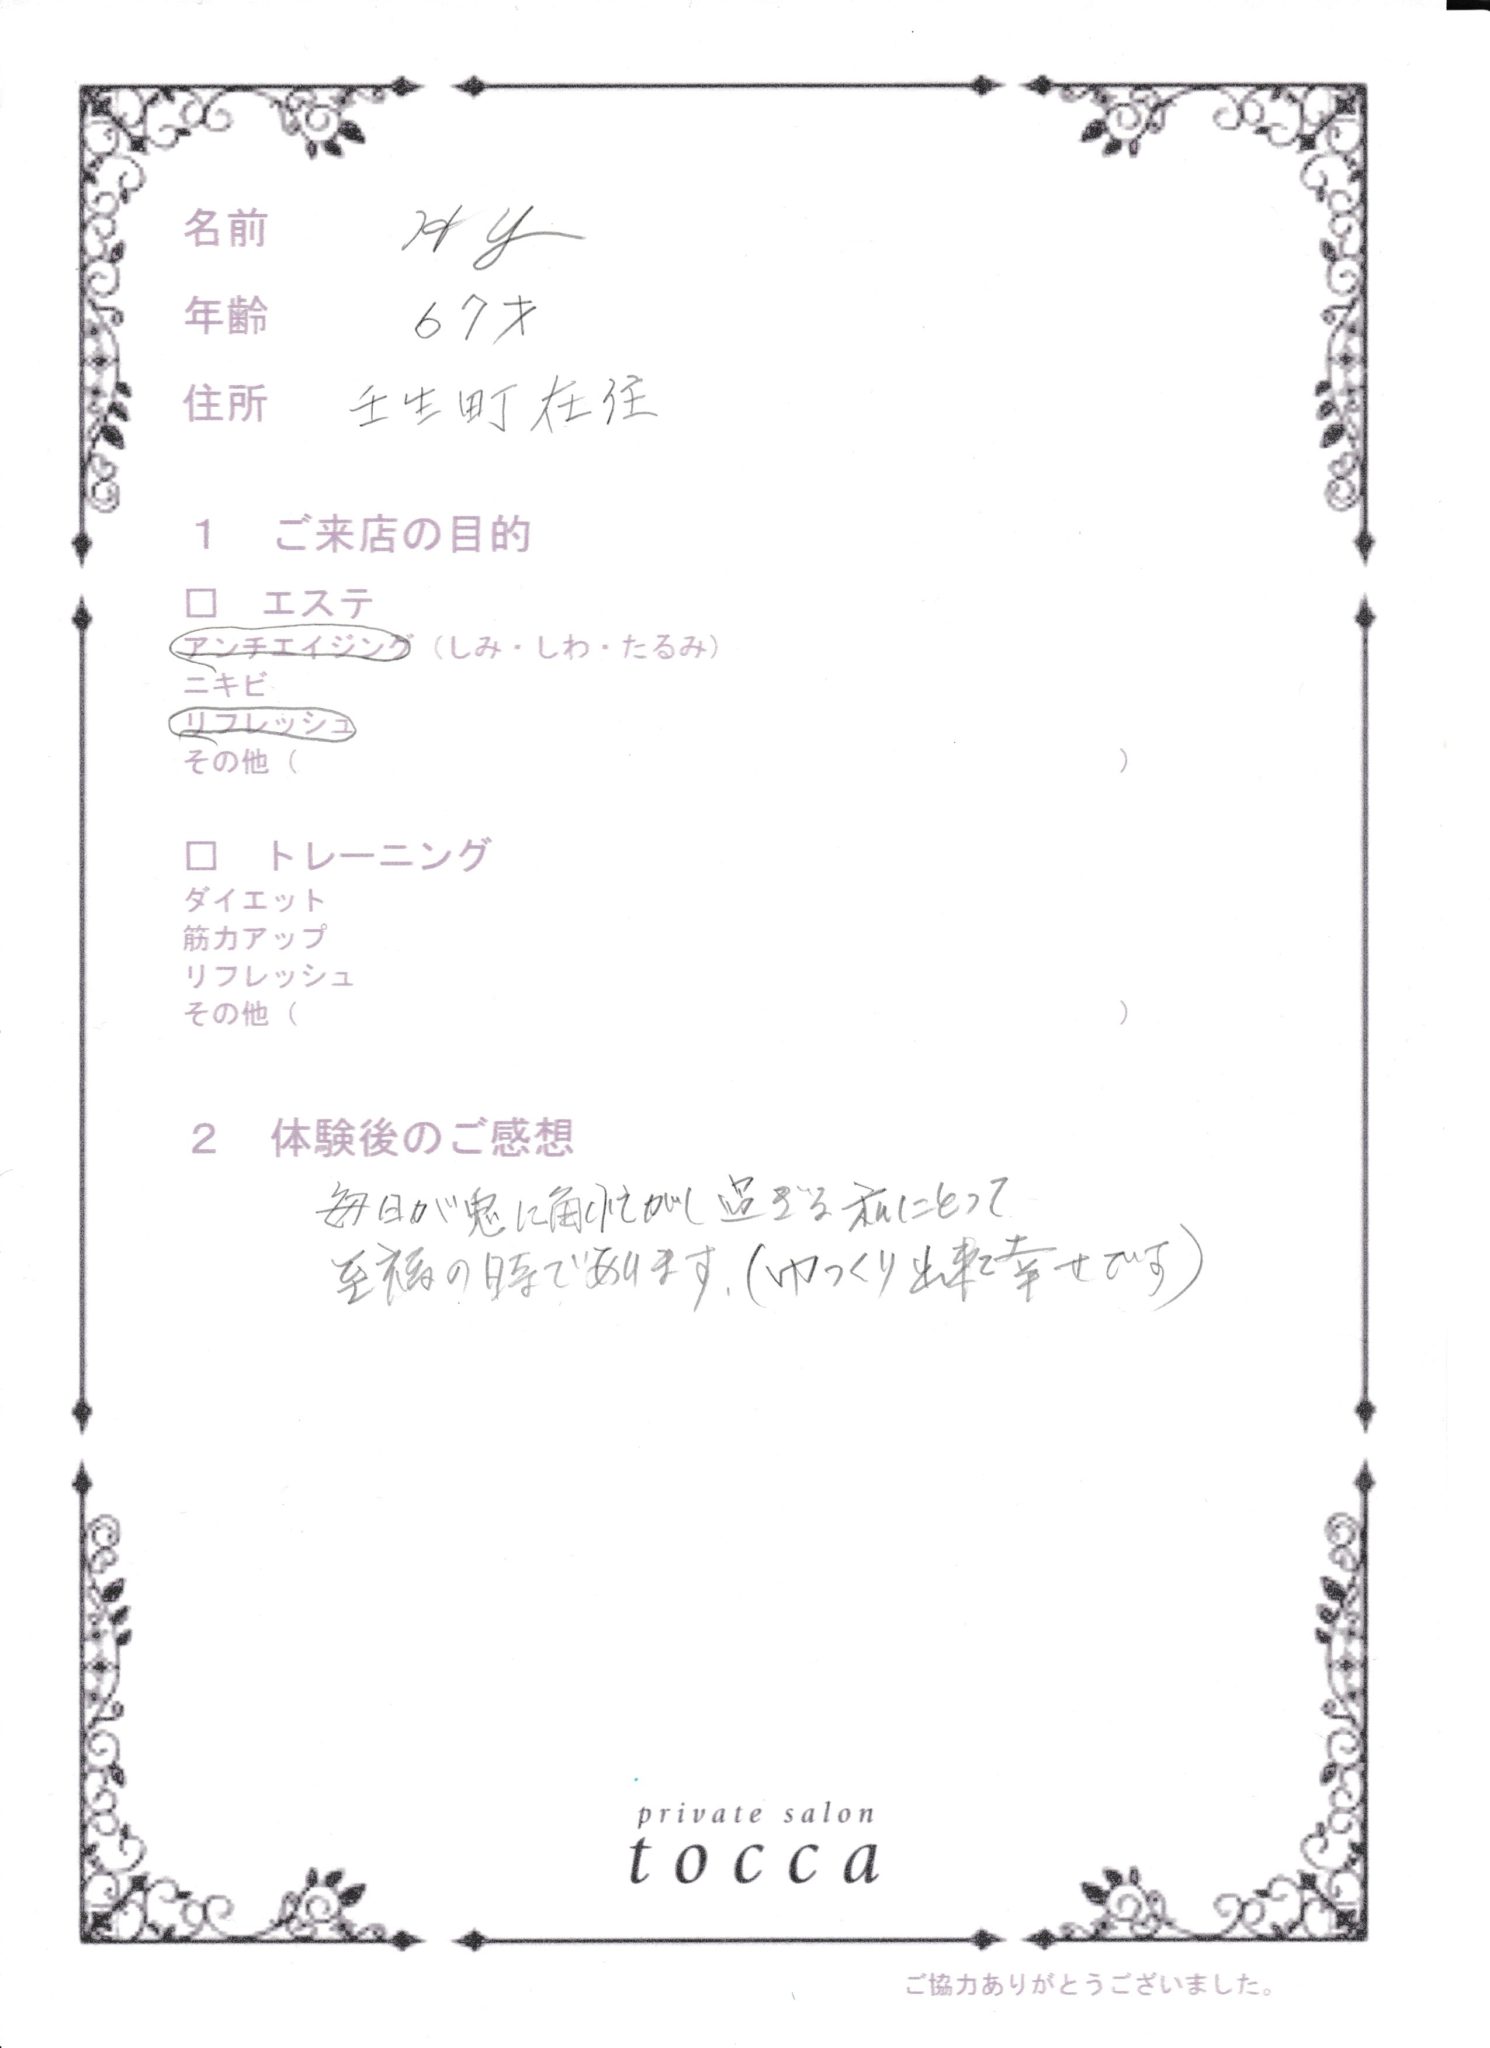 名前 H Y
年齢 67才
住所 壬生町在住
1 ご来店の目的
□ エステ
アンチエイジング（しみ・しわ・たるみ）
ニキビ
リフレッシュ
その他（ ）
□ トレーニング
ダイエット
筋力アップ
リフレッシュ
その他（ ）
2 体験後のご感想
毎日が鬼に角忙がし過ぎる私にとって
至福の時であります.(ゆっくり出来て幸せです)
private salon
tocca
ご協力ありがとうございました。